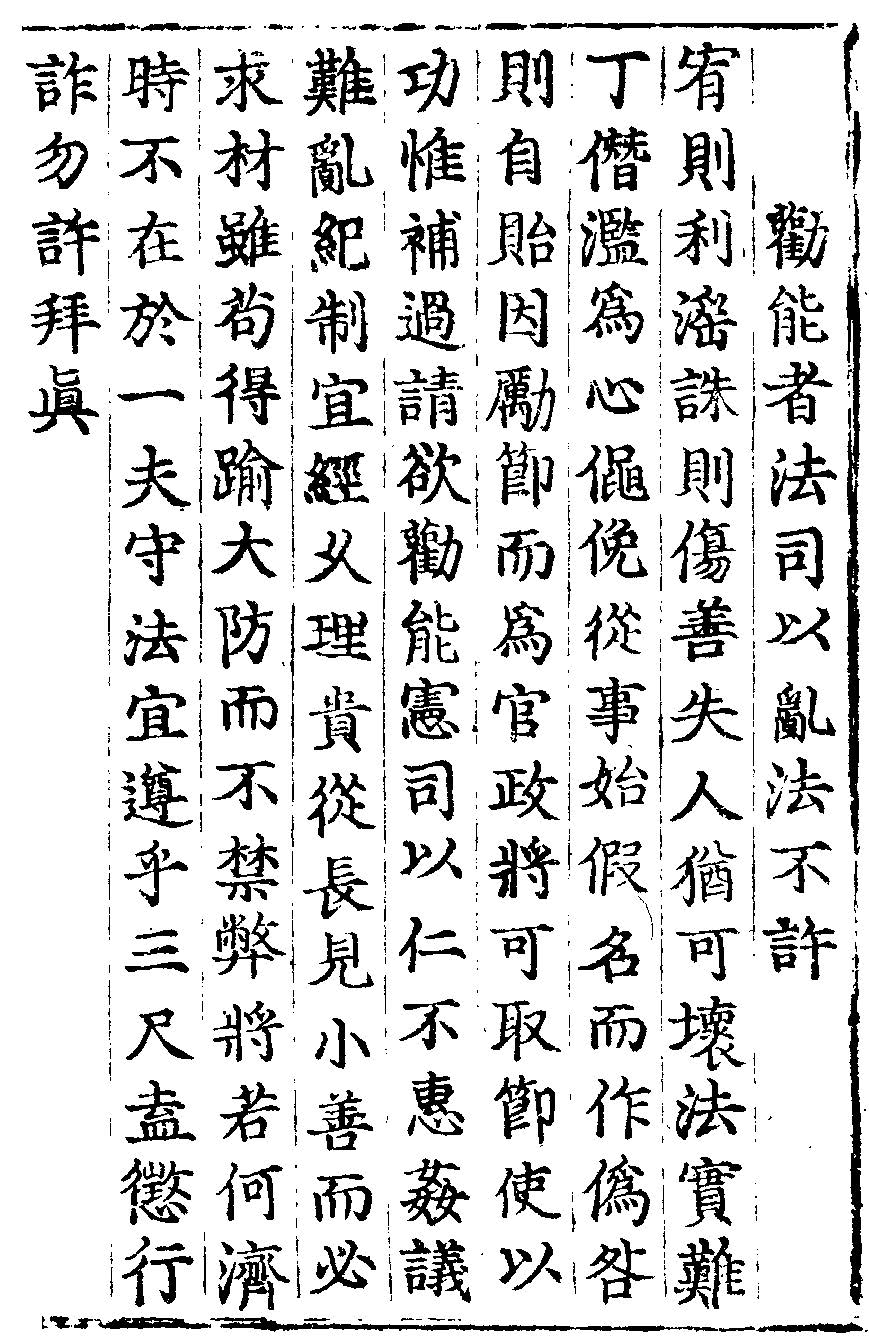 勸能者法司以亂法不許
宥則利滛誅則傷善失人猶可壞法實難
丁僭濫爲心僶俛從事始假名而作僞咎
則自貽因勵節而爲官政將可取節使以
功惟補過請欲勸能憲司以仁不惠姦議
難亂紀制宜經乆理貴從長見小善而必
求材雖茍得踰大防而不禁弊將若何濟
時不在於一夫守法宜遵乎三尺盍懲行
詐勿許拜眞